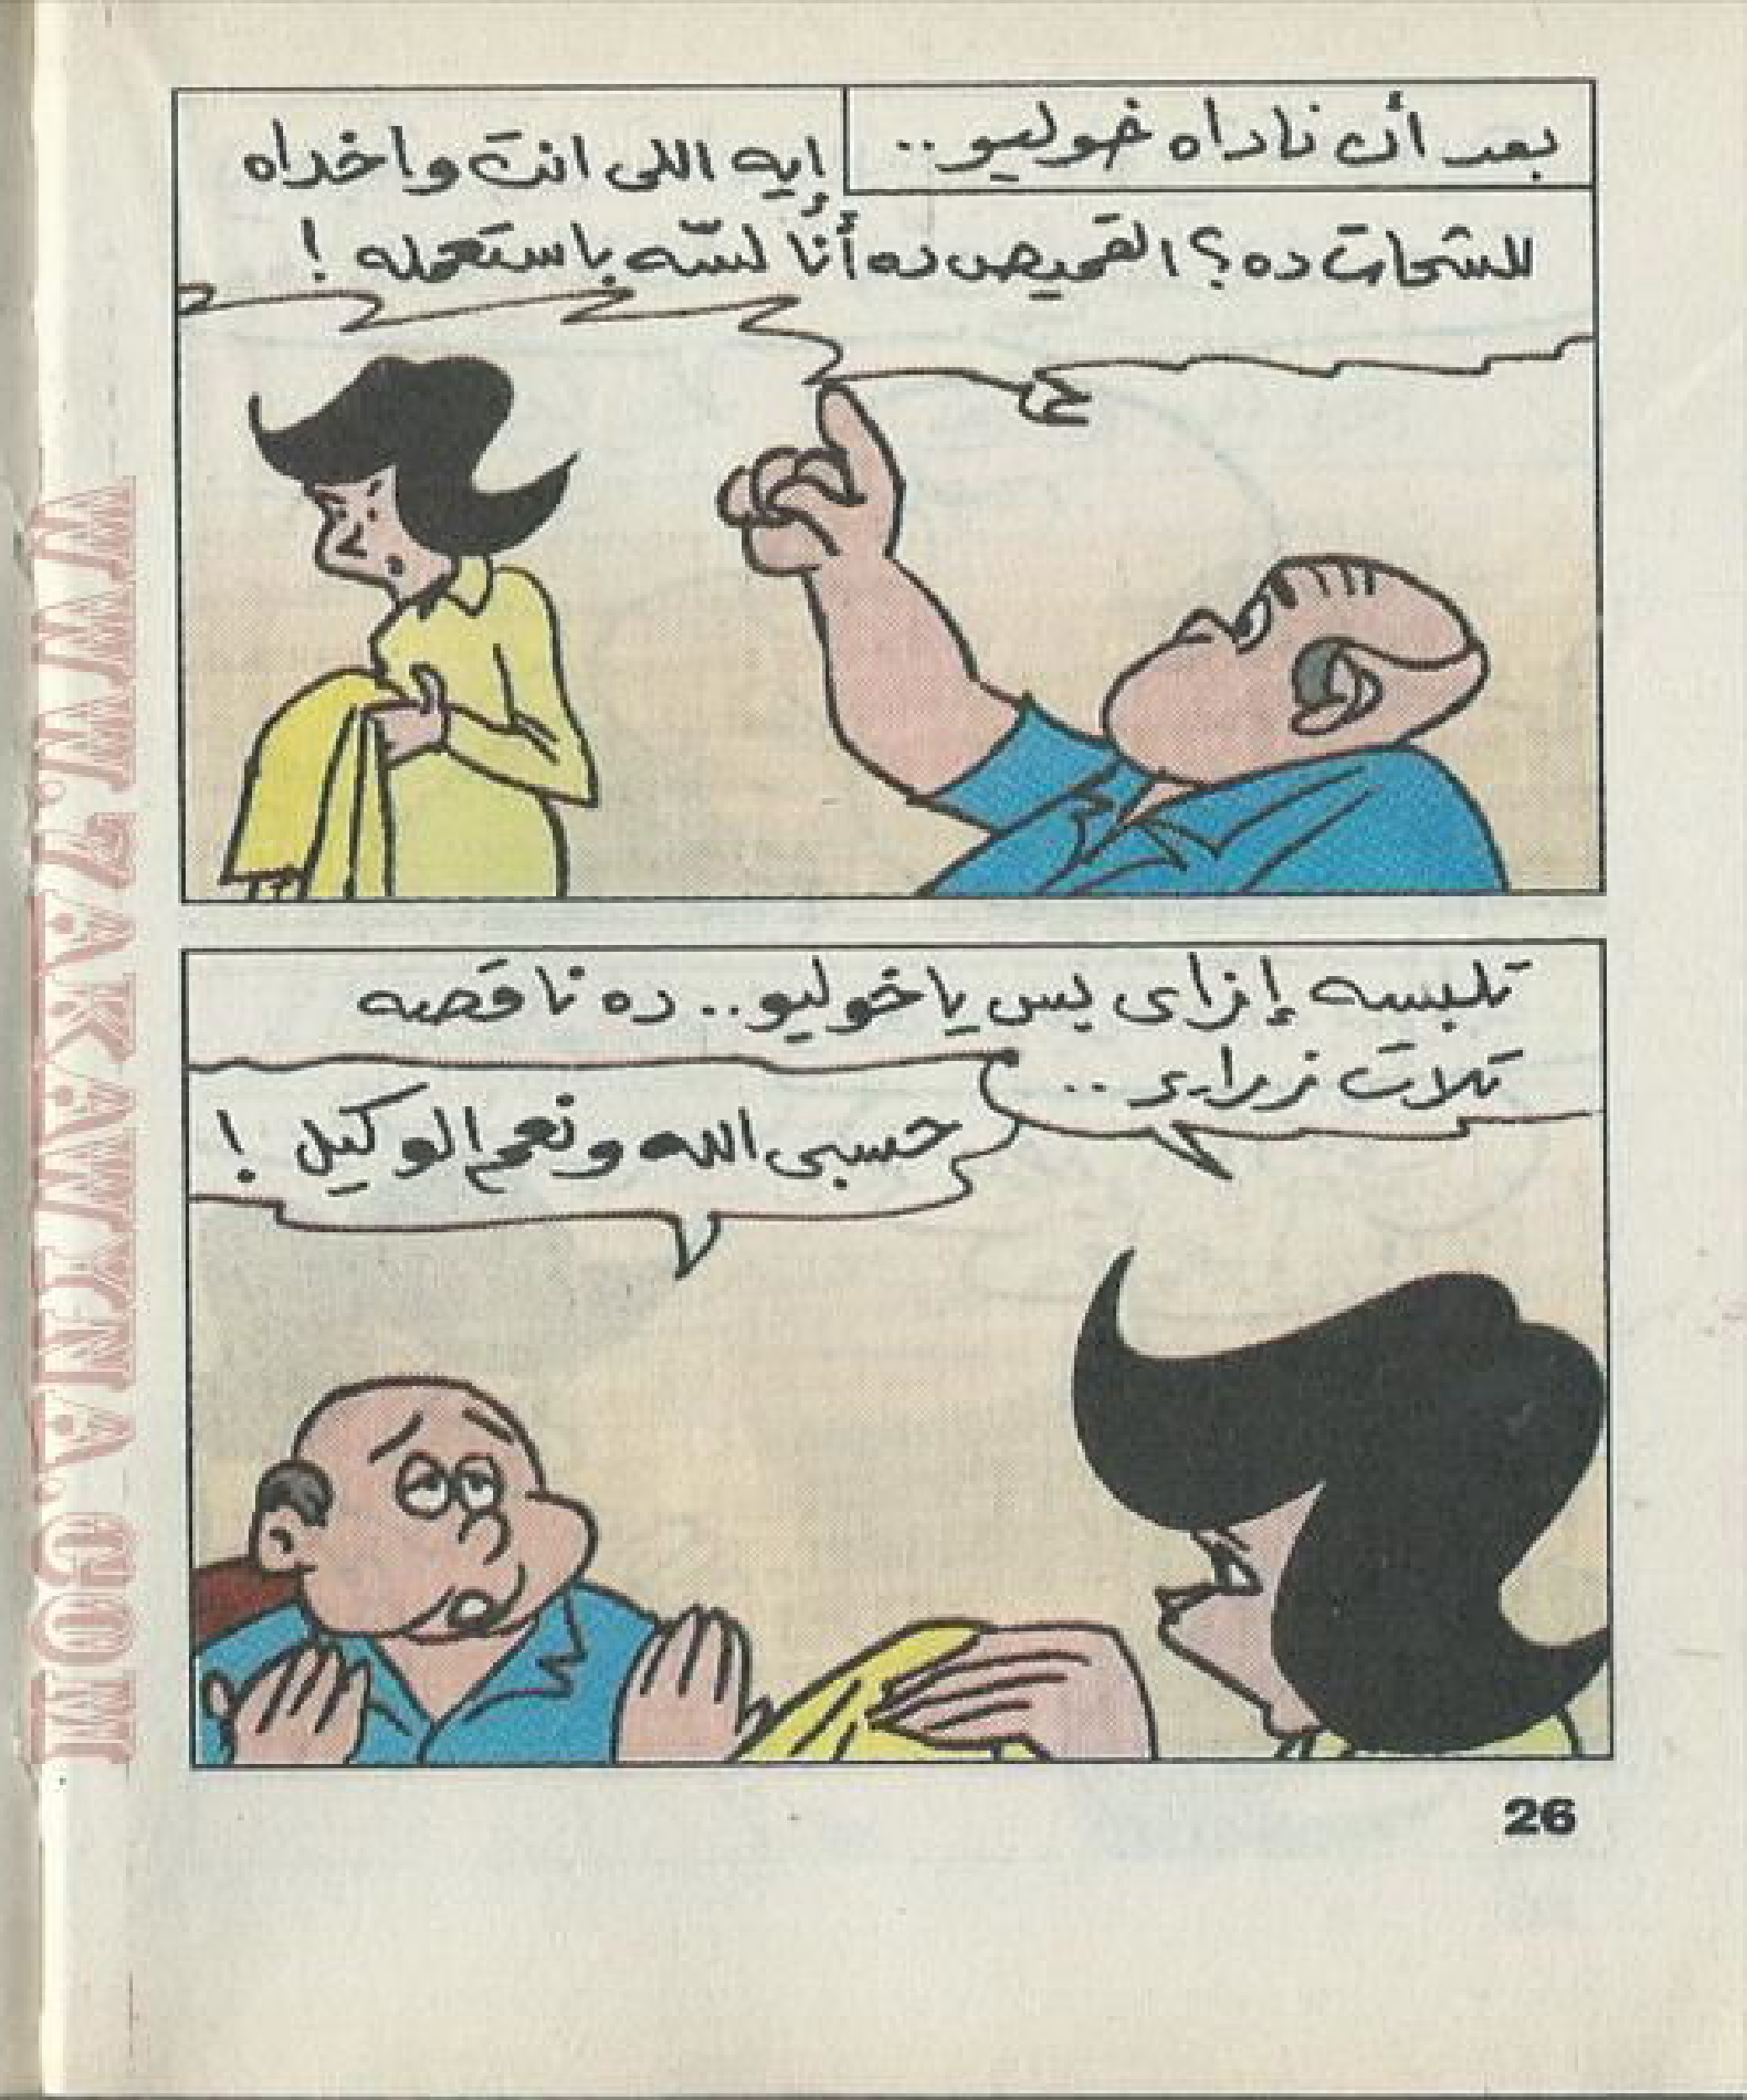 بعد أن ناداه خوليو..
إيه اللى انت واخداه
للشحات ده؟ القميص ده أنا لسّه باستعمله !
تلبسه إزاى بس يا خوليو.. ده ناقصه
تلات زراير ..
حسبى الله ونعم الوكيل !
26
WWW.7AKAWYNA.COM